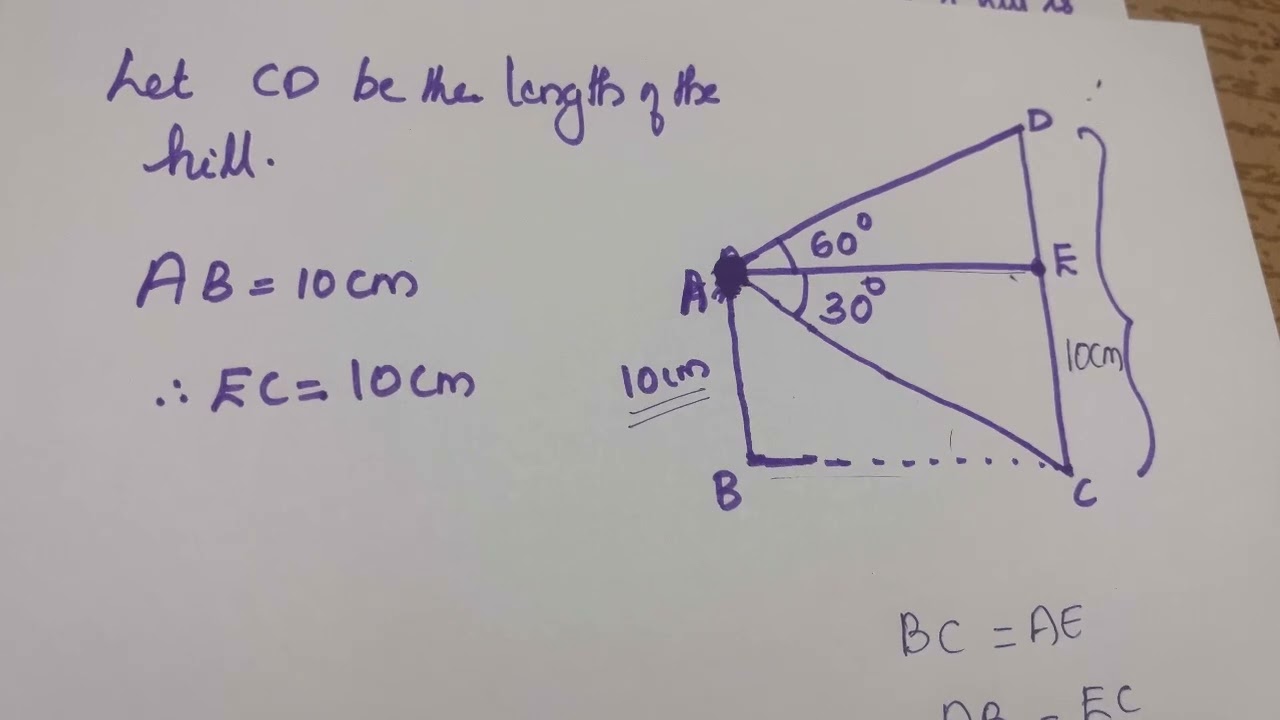 Let CD be the length of the
hill.
AB = 10cm
∴ EC = 10cm
D
60°
A
E
30°
10cm
10cm
B
C
BC = AE
AB = EC